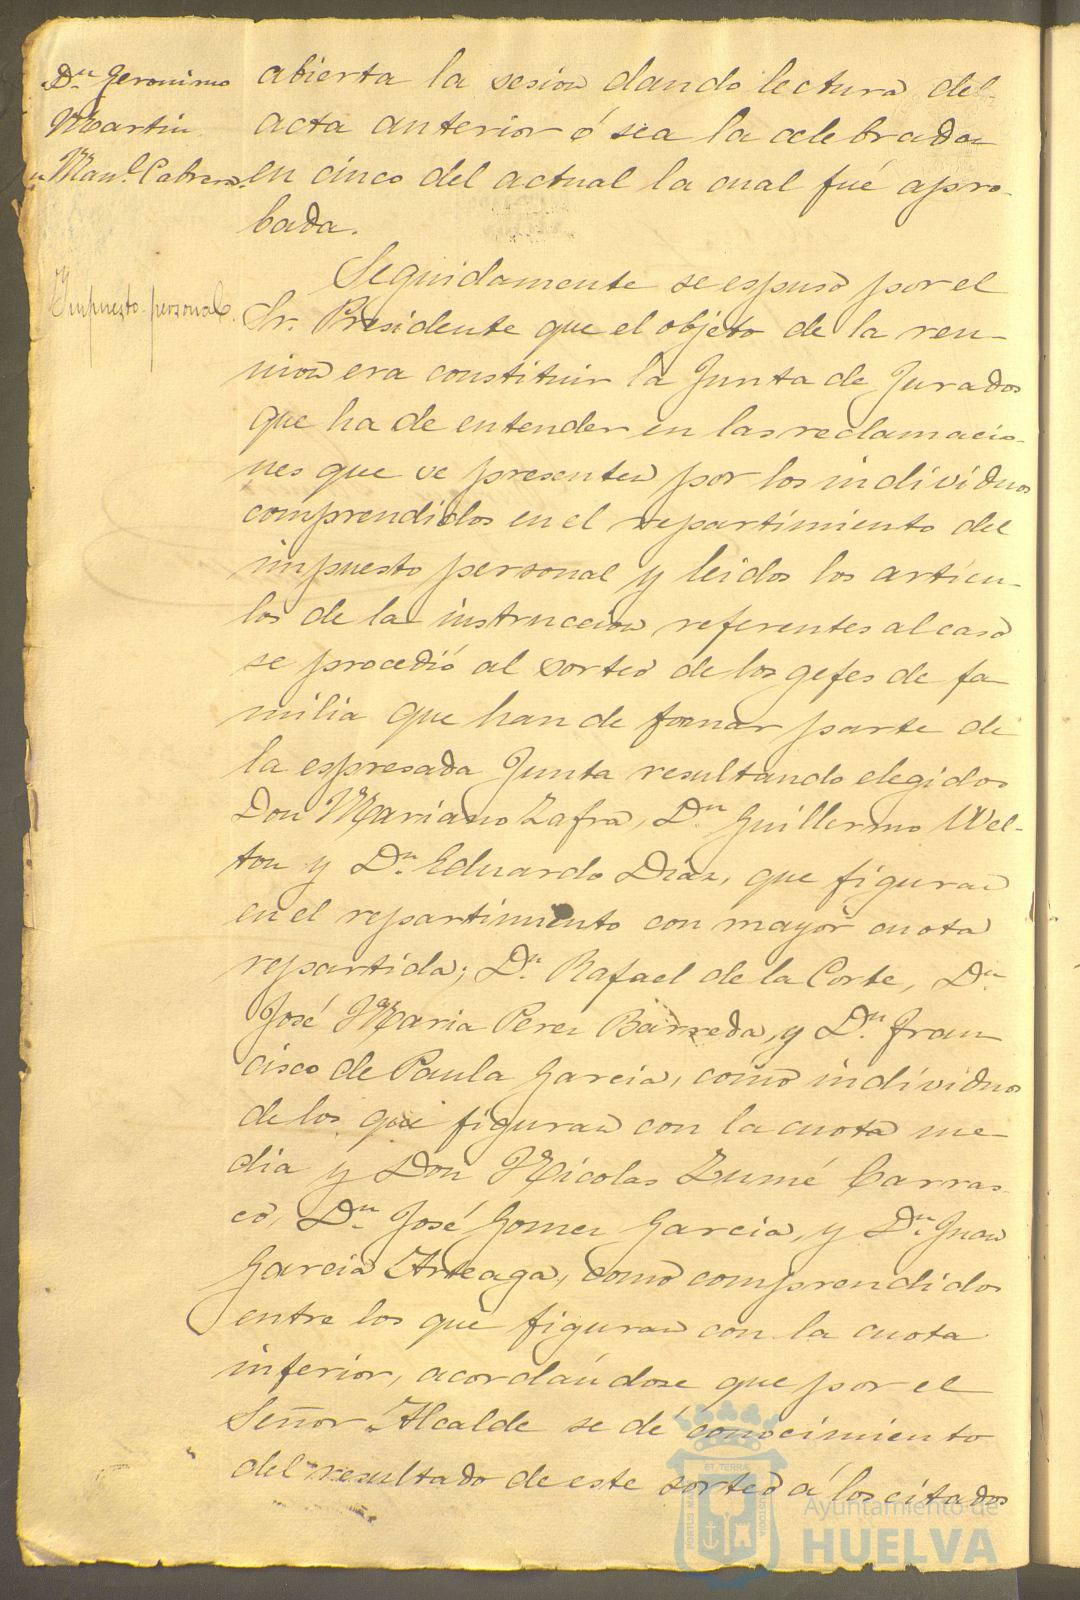 Dn Geronimo
Martin
" Manl. Cabrera
Impuesto personal.
abierta la sesion dando lectura del
acta anterior ó sea la celebrada
en cinco del actual la cual fué apro-
bada.
Seguidamente se espuso por el
Sr. Presidente que el objeto de la reu-
nion era constituir la Junta de Jurados
que ha de entender en las reclamacio-
nes que se presenten por los individuos
comprendidos en el repartimiento del
impuesto personal y leidos los articu-
los de la instruccion referentes al caso
se procedió al sorteo de los gefes de fa
milia que han de formar parte de
la espresada Junta resultando elegidos
Don Mariano Zafra, Dn Guillermo Wel-
ton y Dn Eduardo Diaz, que figuran
en el repartimiento con mayor cuota
repartida; Dn Rafael de la Corte, Dn
José Maria Perez Barreda, y Dn Fran
cisco de Paula Garcia, como individuos
de los que figuran con la cuota me
dia y Don Nicolas Zumé Carras-
co, Dn José Gomez Garcia, y Dn Juan
Garcia Arteaga, como comprendidos
entre los que figuran con la cuota
inferior, acordándose que por el
Señor Alcalde se dé conocimiento
del resultado de este sorteo á los citados
PORTUS MARIS
ET TERRAE
CUSTODIA
Ayuntamiento de
HUELVA